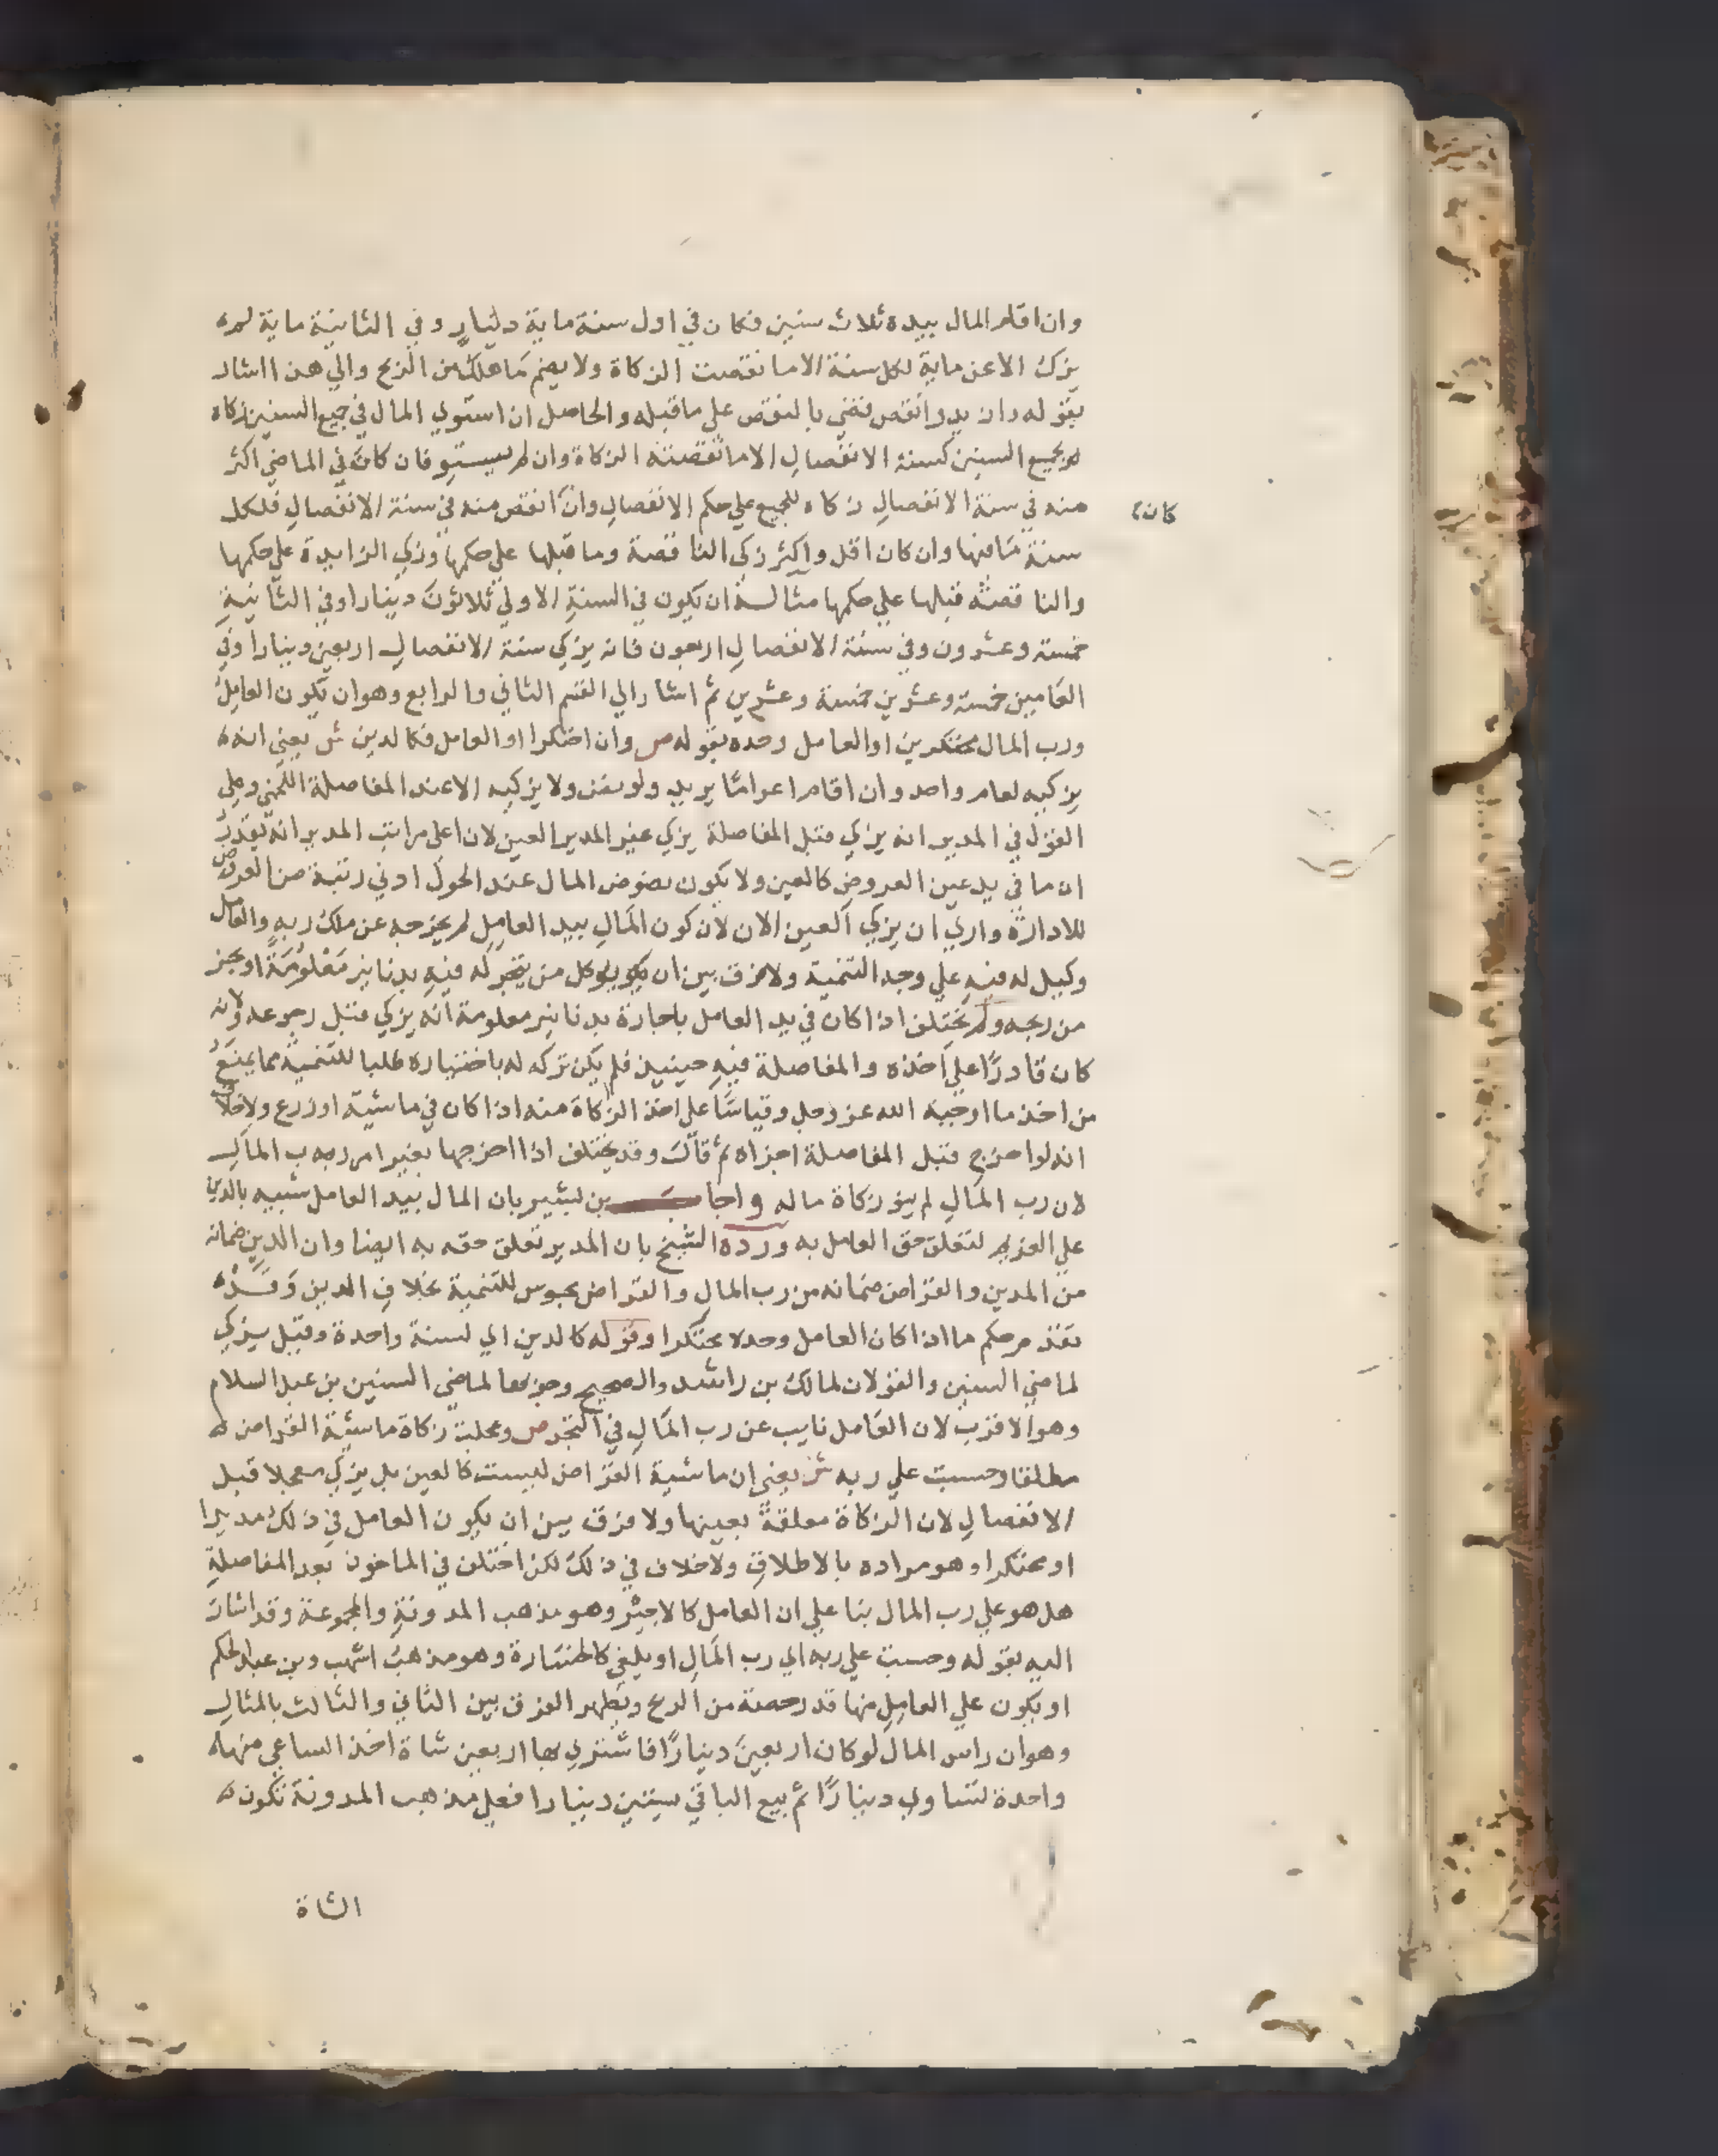 وان اقام المال بيده ثلاث سنين فكان في اول سنة ماية دينار وفي الثانية ماية لم
يزك الا عن ماية لكل سنة الا ما نقصت الزكاة ولا يضم ما هلك من الربح والي هذا اشار
بقوله وان يد وانقص قضي بالنقص علي ما قبله والحاصل ان استوي المال في جميع السنين زكاه
لجميع السنين كسنة الانفصال الا ما نقصته الزكاة وان لم يستو فان كان في الماضي اكثر
منه في سنة الانفصال زكاه للجميع علي حكم الانفصال وان انقص منه في سنة الانفصال فلكل
كان
سنة ما فيها وان كان اقل واكثر زكي الناقصة وما قبلها علي حكمها وزكي الزايدة علي حكمها
والناقصة قبلها علي حكمها مثاله ان يكون في السنة الاولي ثلاثون دينارا وفي الثانية
خمسة وعشرون وفي سنة الانفصال اربعون فانه يزكي سنة الانفصال اربعين دينارا وفي
العامين خمسة وعشرين خمسة وعشرين ثم اشار الي القسم الثاني والرابع وهو ان يكون العامل
ورب المال محتكرين او العامل وحده بقوله ص وان احتكرا او العامل فكالدين ش يعني انه
يزكيه لعام واحد وان اقام اعواما يريد ولو نض ولا يزكيه الا عند المفاصلة اللخمي وعلي
القول في المدير انه يزكي قبل المفاصلة يزكي غير المدير العين لان اعلي مراتب المدير انه يقدر
ان ما في يد عين العروض كالعين ولا يكون نضوض المال عند الحول ادني رتبة من العروض
للادارة واري ان يزكي العين الان لان كون المال بيد العامل لم يخرجه عن ملك ربه والعامل
وكيل له فيه علي وجه التنمية ولا فرق بين ان يوكل من يتجر له فيه بدنانير معلومة او بجز
من ربحه ولم يختلف اذا كان في يد العامل باجارة بدنانير معلومة انه يزكي قبل رجوعه ولانه
كان قادرا علي اخذه والمفاصلة فيه حينيذ فلم يكن تركه له باختياره طلبا للتنمية مما يمنع
من اخذ ما اوجبه الله عز وجل وقياسا علي اخذ الزكاة منه اذا كان في ماشية او زرع ولا خلاف
انه لو اخرج قبل المفاصلة اجزاه ثم قال وقد يختلف اذا اخرجها بغير امر ربه ب المال
لان رب المال لم ينو زكاة ماله واجا بن بشير بان المال بيد العامل شبيه بالدين
علي الغريم لتعلق حق العامل به ورده الشيخ بان المدير تعلق حقه به ايضا وان الدين ضمانه
من المدين والقراض ضمانه من رب المال والقراض محبوس للتنمية بخلاف الدين وقد
تقدم حكم ما اذا كان العامل وحده محتكرا وقوله كالدين اي لسنة واحدة وقيل يزكي
لماضي السنين والقولان لمالك بن راشد والصحيح وجوبها لماضي السنين بن عبد السلام
وهو الاقرب لان العامل نايب عن رب المال في التجر ص وعجلت زكاة ماشية القراض
مطلقا وحسبت علي ربه ش يعني ان ماشية القراض ليست كالعين بل يزكي معجلا قبل
الانفصال لان الزكاة معلقة بعينها ولا فرق بين ان يكون العامل في ذلك مديرا
او محتكرا وهو مراده بالاطلاق ولا خلاف في ذلك لكن اختلف في الماخوذ بعد المفاصلة
هل هو علي رب المال بنا علي ان العامل كالاجير وهو مذهب المدونة والمجموعة وقد اشار
اليه بقوله وحسبت علي ربه اي رب المال او يلغي كالخسارة وهو مذهب اشهب وبن عبد الحكم
او يكون علي العامل منها قدر حصته من الربح ويظهر الفرق بين الثاني والثالث بالمثال
وهو ان راس المال لو كان اربعين دينارا فاشتري بها اربعين شاة اخذ الساعي منها
واحدة تساوي دينارا ثم بيع الباقي بستين دينارا فعلي مذهب المدونة تكون
الشاة